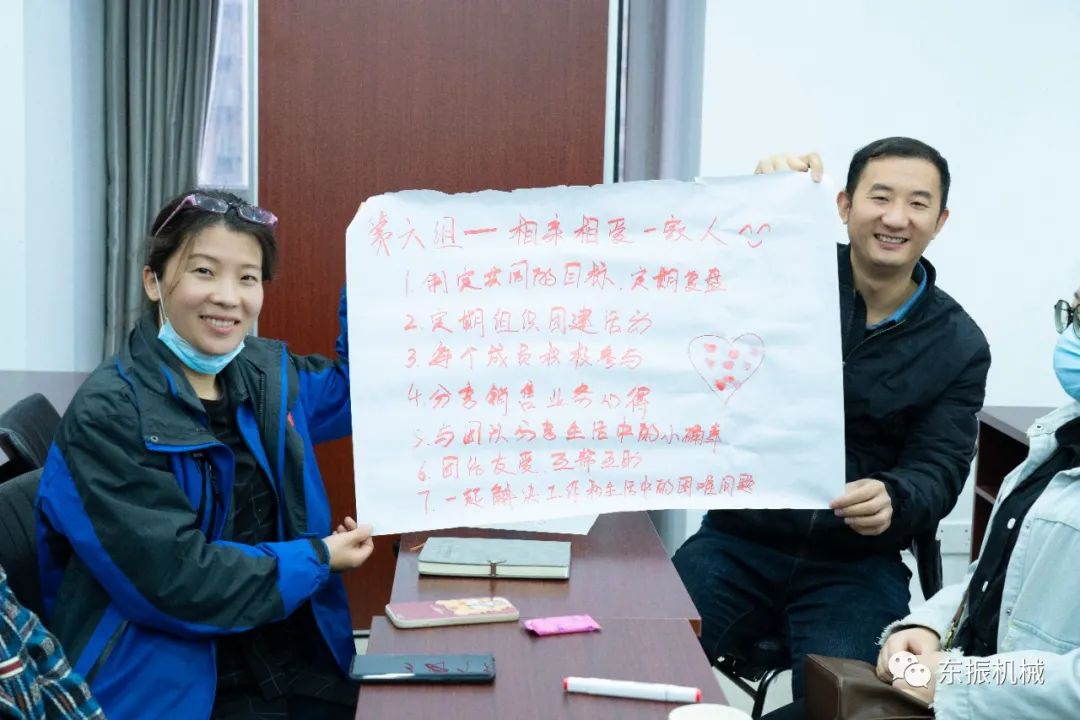 第六组一相亲相爱一家人
1.制定共同的目标、定期复盘
2.定期组织团建活动
3.每个成员积极参与
4.分享销售业务心得
5.与团队分享生活中的小确幸
6.团结友爱、互帮互助
7.一起解决工作和生活中的困难问题
东振机械